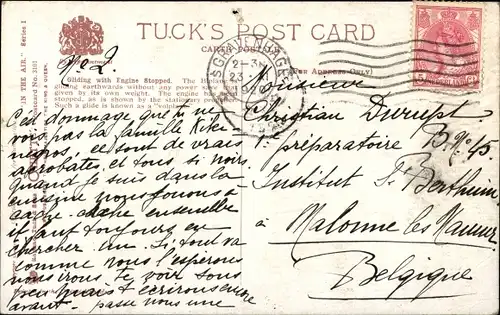 TUCK'S POST CARD
CARTE POSTALE
(For Address Only)
"IN THE AIR." Series I
Postcard No. 3101
No 2.
Gliding with Engine Stopped. The Biplane
gliding earthwards without any power save
given by its own weight. The engine has
stopped, as is shown by the stationary propeller.
Such a glide is known as a
'S GRAVENHAGE
2-3 N
23
1910
5
Monsieur
Christian Durupt
préparatoire B. No 45
Institut St Berthuin
à Malonne les Namur
Belgique
C'est dommage que tu ne
vois pas la famille Kiku
negros, ce sont de vrais
acrobates, et tous si noirs
Quand je suis dans la
cuisine nous jouons à
cache ensemble
il faut toujours en
chercher un. Si tout va
comme nous l'espérons
nous irons te voir sous
peu mais t'écrirons encore
avant - passe nous une